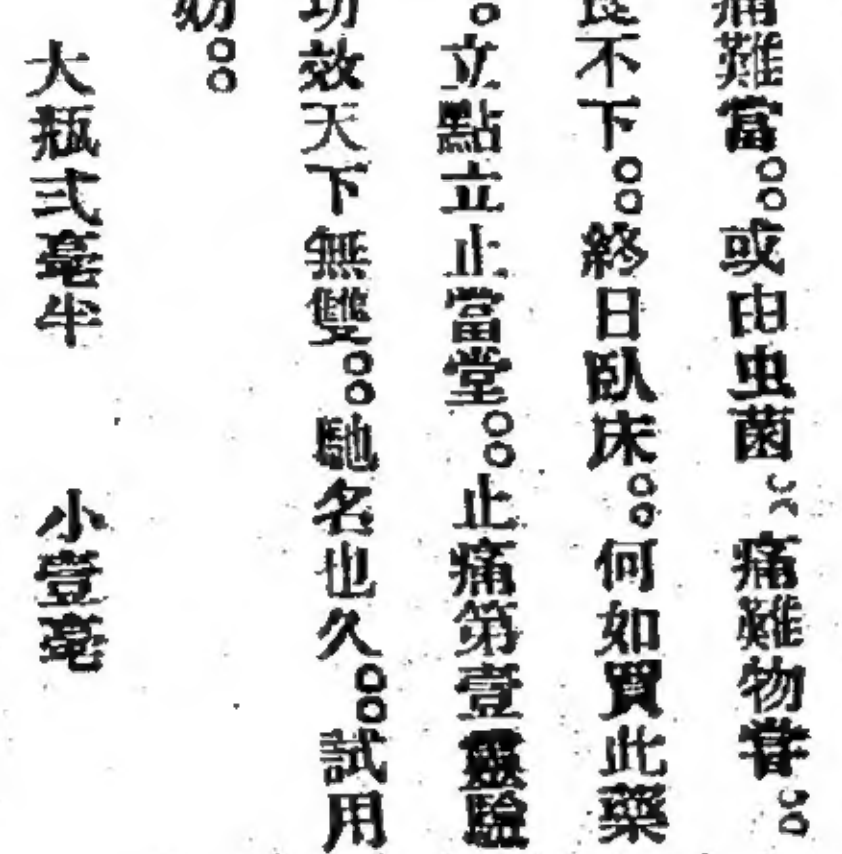 痛難當。。或由虫菌。。痛難物嘗。。
不下。。終日臥床。。何如買此藥
。立點立止當堂。。止痛第壹靈驗
功效天下無雙。。馳名也久。。試用
妨。。
大瓶弍毫半 小壹毫